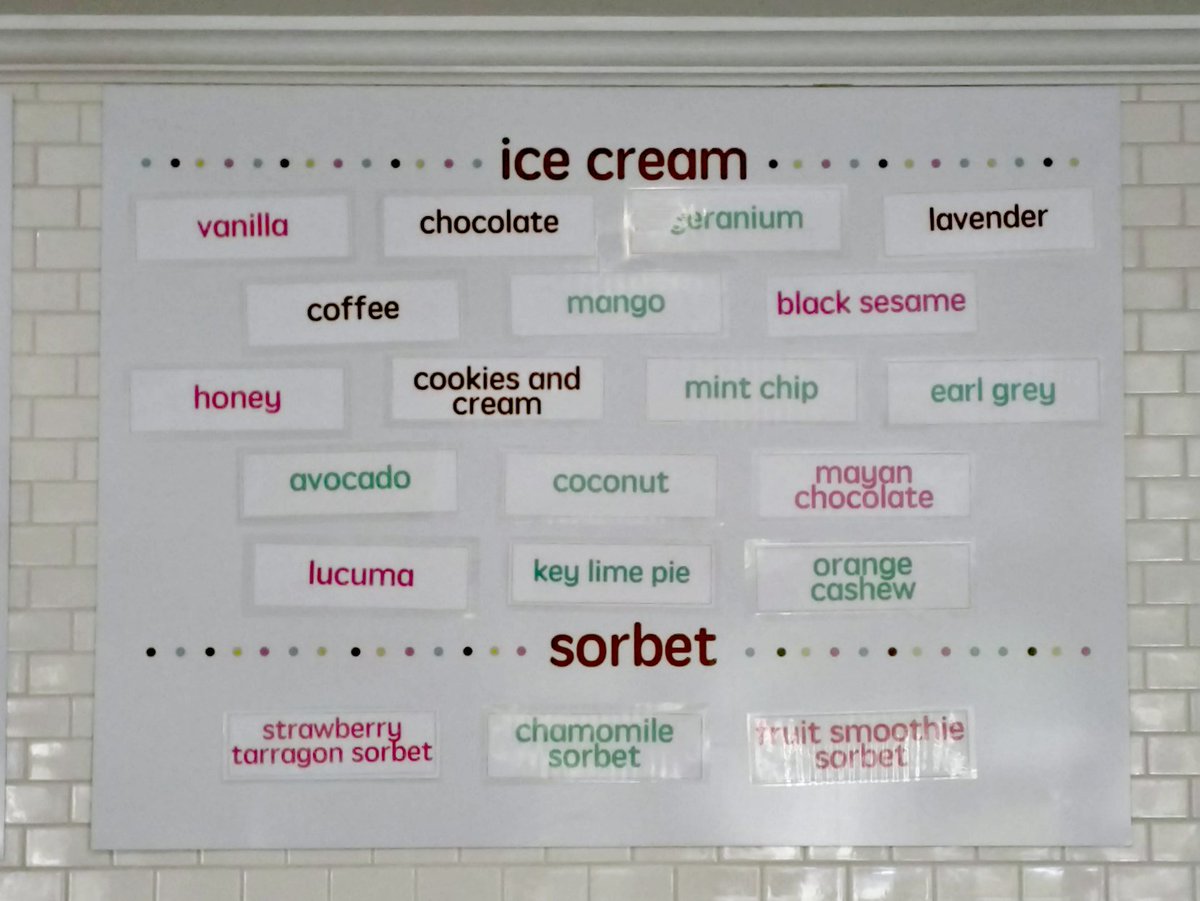 ice cream
vanilla chocolate geranium lavender
coffee mango black sesame
honey cookies and cream mint chip earl grey
avocado coconut mayan chocolate
lucuma key lime pie orange cashew
sorbet
strawberry tarragon sorbet chamomile sorbet fruit smoothie sorbet